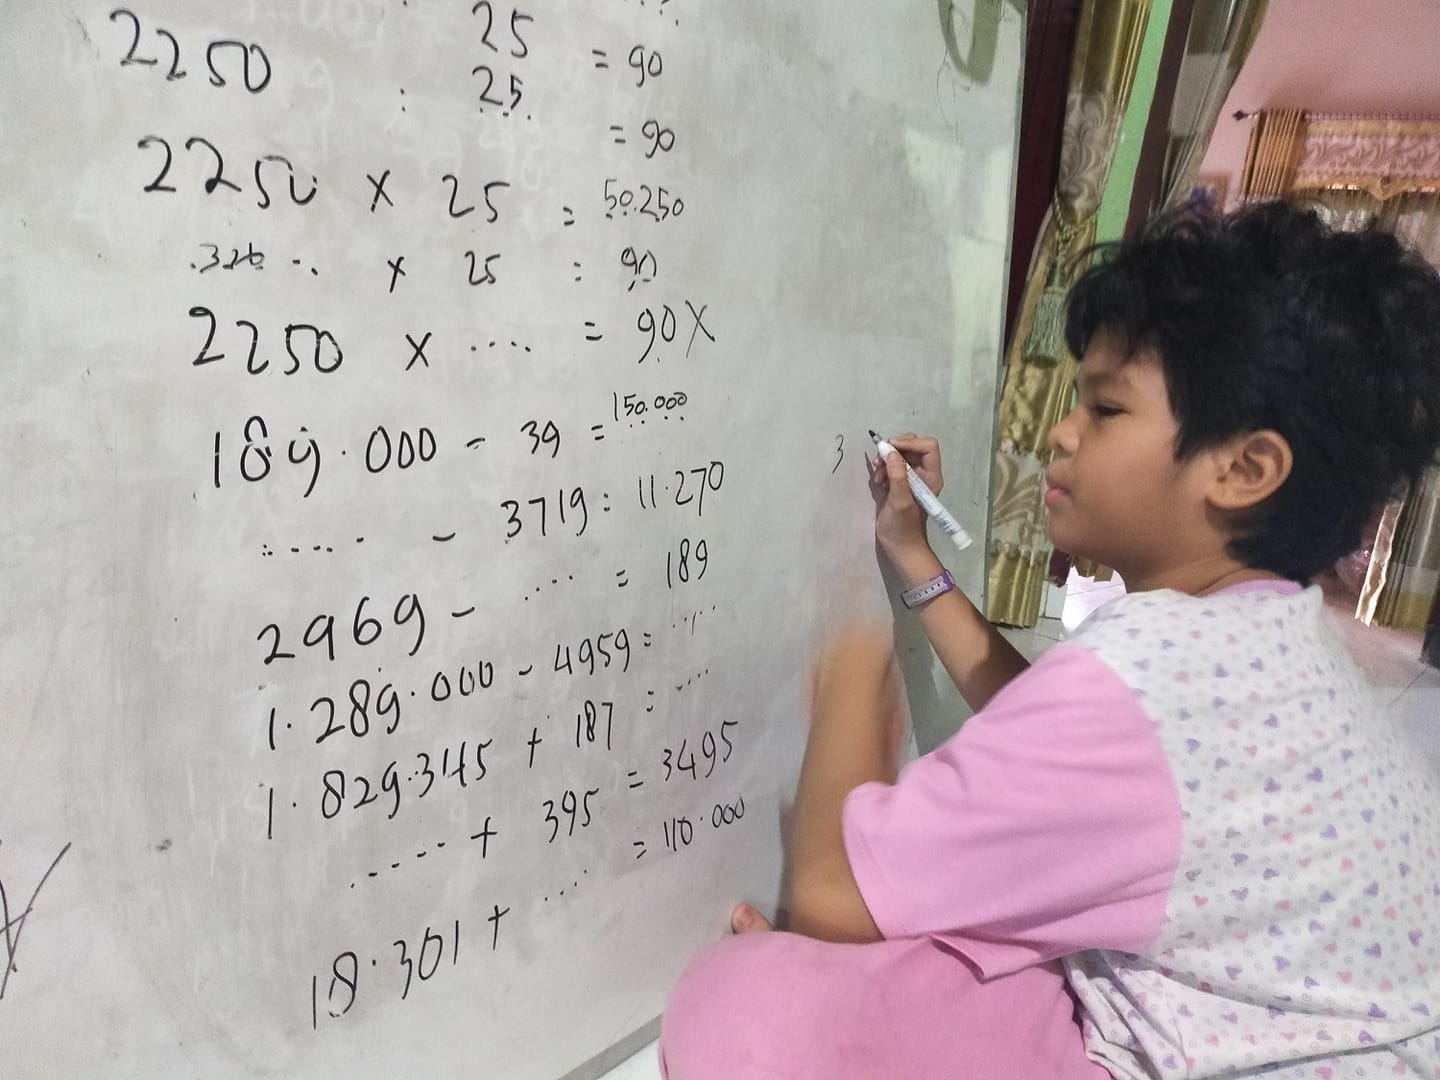 2250 25 = 90
: 25
= 90
2250 x 25 = 50.250
x 25 : 90
2250 x .... = 90 X
189.000 - 39 = 150.000
...... - 3719 : 11.270
2969 - .... = 189
1.289.000 - 4959 = ....
1.829.345 + 187 : ....
..... + 395 = 3495
18.301 + .... = 110.000
3